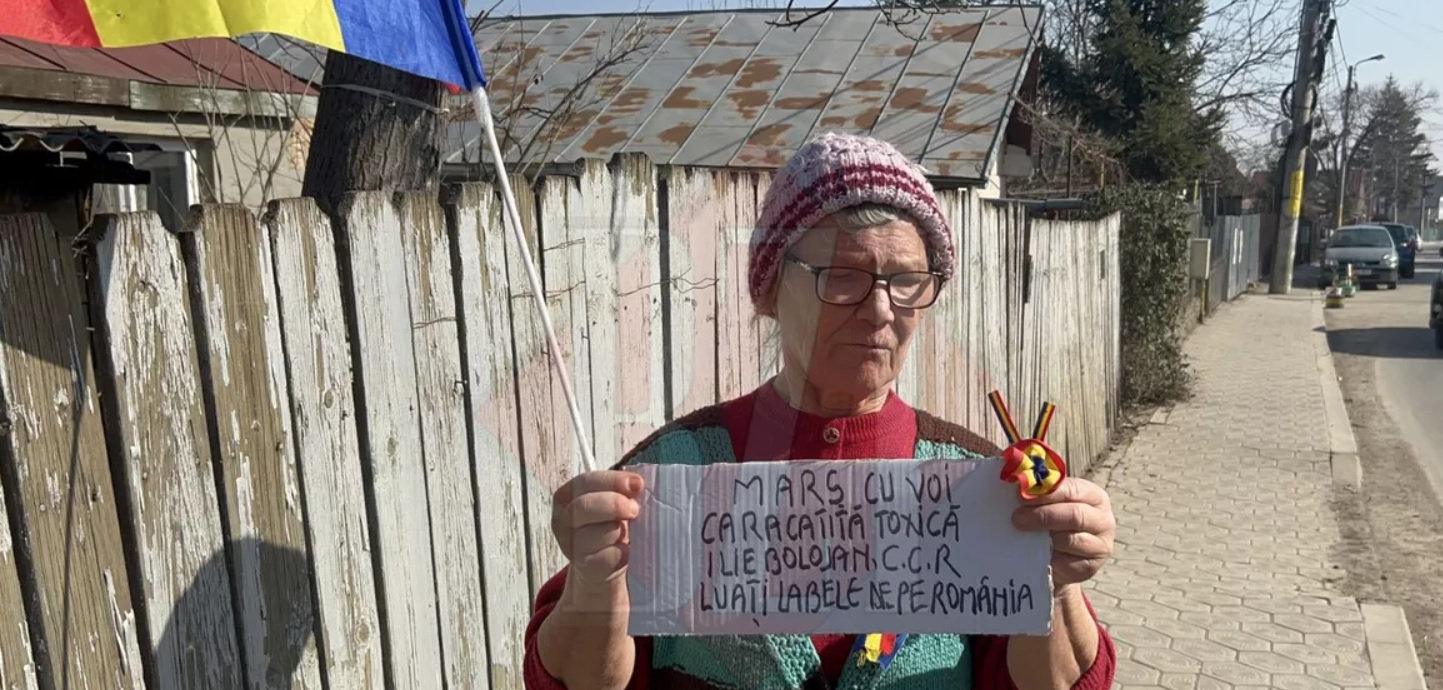 MARȘ CU VOI
CARACATIȚĂ TOXICĂ
ILIE BOLOJAN. C.C.R
LUAȚI LABELE DE PE ROMÂNIA